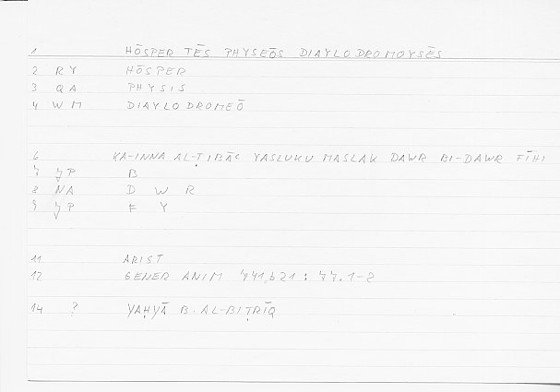 1 HŌSPER TĒS PHYSEŌS DIAYLODROMOYSĒS
2 RY HŌSPER
3 QA PHYSIS
4 WM DIAYLODROMEŌ
6 KA-INNA AL-ṬIBĀʿ YASLUKU MASLAK DAWR BI-DAWR FĪHI
7 B
8 NA D W R
9 F Y
11 ARIST
12 GENER ANIM 741,b21 : 77.1-2
14 ? YAḤYĀ B. AL-BIṬRĪQ